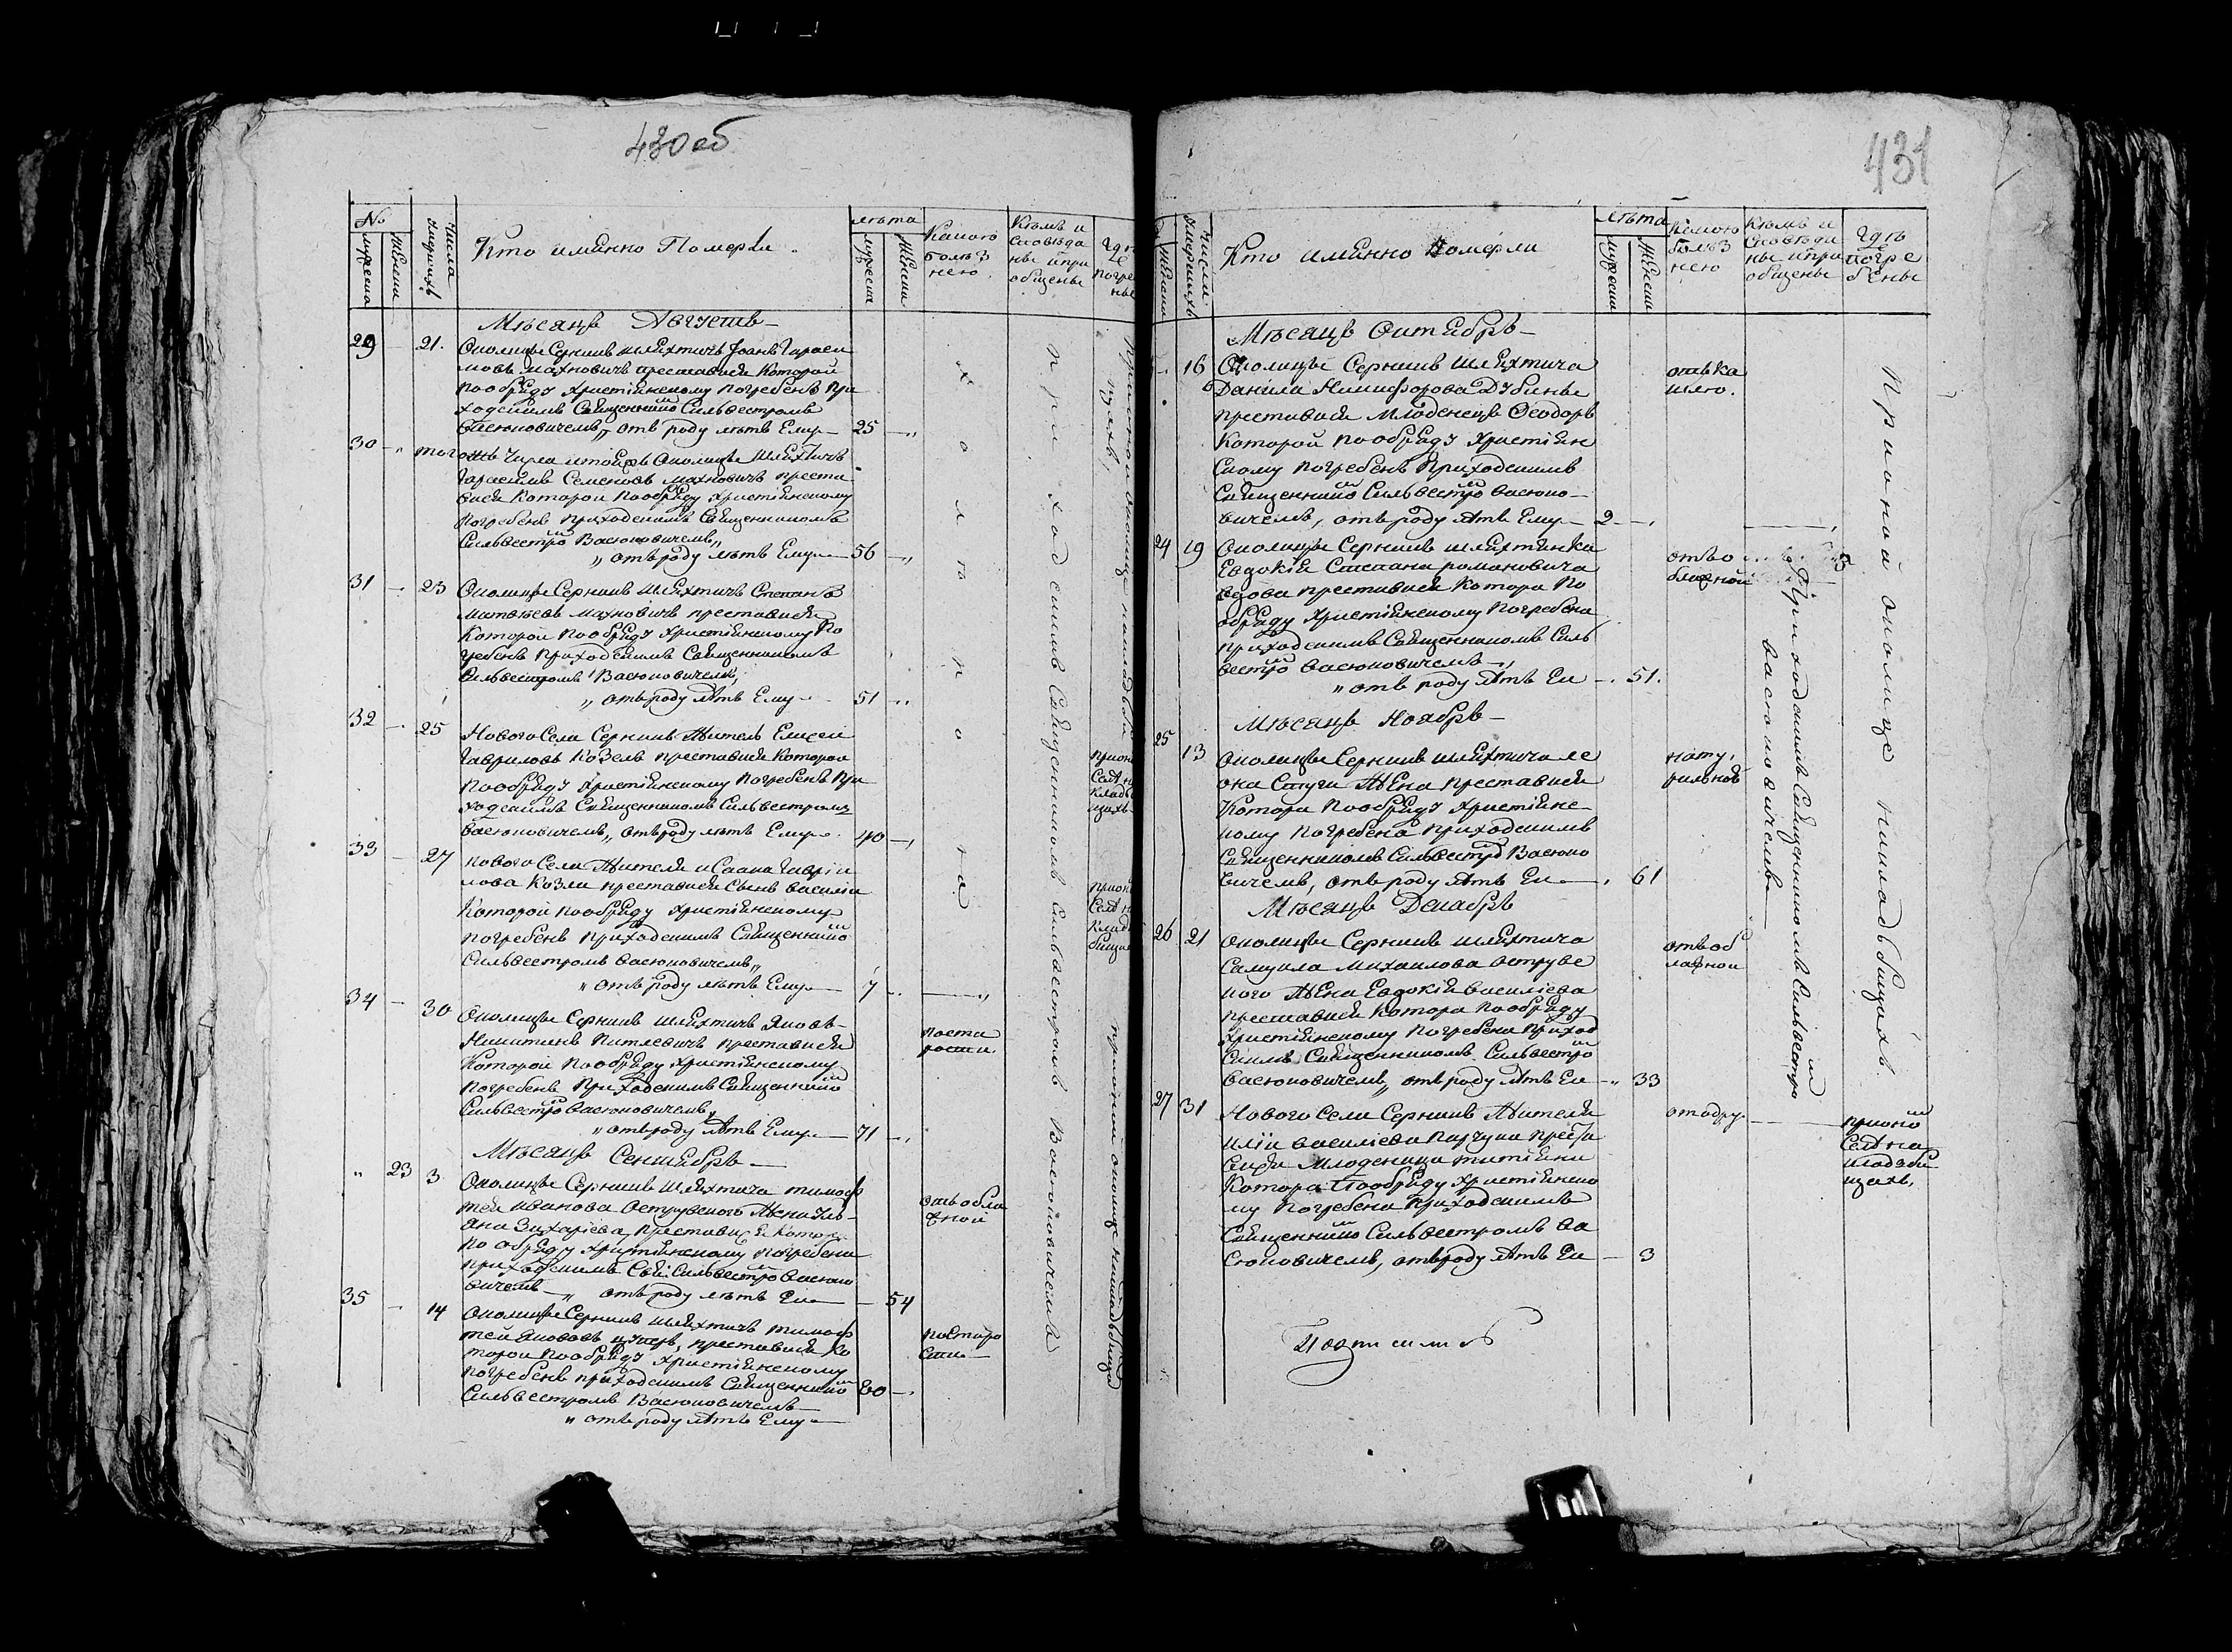 430 об
№
мужеска
женска
Числа умершихъ
Кто имянно Померли
лѣта
мужеска
женска
Какою
болѣз
нею
Кѣмъ и
сповѣда
ны и при
общены
Гдѣ
погре
ны
Мѣсяцъ Августъ
29 — 21. Околицы Серникъ шляхтичъ Іоанъ Гараси
мовъ Махновичъ преставися Которой
по обряду христіянскому погребенъ При
ходскимъ Священнико Сильвестромъ
Васюковичемъ, отъ роду лѣтъ Ему — 25 —
30 — тогожъ Числа итойжъ Околицы Шляхтичъ
Герасимъ Семеновъ Махновичъ преста
вися Которой по обряду христіянскому
погребенъ приходскимъ Священникомъ
Сильвестро Васюковичемъ,
„ отъ роду лѣтъ Ему — 56 —
31 — 23 Околицы Серникъ Шляхтичъ Степанъ
Матвѣевъ Махновичъ преставися
Которой по обряду христіянскому По
гребенъ приходскимъ Священникомъ
Сильвестромъ Васюковичемъ,
„ отъ роду лѣтъ Ему — 51 —
32 — 25 Нового Села Серникъ Житель Елисей
Гавриловъ Козелъ преставися Которой
по обряду христіянскому погребенъ При
ходскимъ Священникомъ Сильвестромъ
Васюковичемъ, отъ роду лѣтъ Ему — 40 —
33 — 27 Нового Села Жителя Исаака Гаврии
лова Козла преставися Сынъ Василій
Которой по обряду христіянскому
погребенъ приходскимъ Священнико
Сильвестромъ Васюковичемъ,
„ отъ роду лѣтъ Ему — 7 —
34 — 30 Околицы Серникъ Шляхтичъ Яковъ
Никитинъ преставися
Которой по обряду христіянскому
погребенъ Приходскимъ Священнико
Сильвестро Васюковичемъ,
„ отъ роду лѣтъ Ему — 71 —
поста
рости
Мѣсяцъ Сентябрь —
„ 23 3 Околицы Серникъ Шляхтича Тимоф
тея Иванова Остручского Жена Уль
яна Захаріева преставися Котор
по обряду христіянскому погребена
приходскимъ Свя. Сильвестро Васюко
вичемъ — „ отъ роду лѣтъ Ей — 54
отъ обло
жной
35 — 14 Околицы Серникъ Шляхтичъ Тимоф
тей Яковъ преставися Ко
торой по обряду христіянскому
погребенъ приходскимъ Священнико
Сильвестромъ Васюковичемъ
„ отъ роду лѣтъ Ему — 80 —
постаро
сти
Приходскимъ Священникомъ Сильвестромъ Васюковичемъ
431
женска
Числа умершихъ
Кто имянно Померли
лѣта
мужеска
женска
Какою
болѣз
нею
Кѣмъ и
сповѣда
ны и при
общены
Гдѣ
погре
бены
Мѣсяцъ Октябрь —
16 Околицы Серникъ Шляхтича
Данила Никифорова Дубины
преставися Младенецъ Феодоръ
Которой по обряду христіян
скому погребенъ Приходскимъ
Священнико Сильвестро Васюко
вичемъ, отъ роду лѣтъ Ему — 2 —
отъ ка
шлю.
24 19 Околицы Серникъ шляхтянка
Евдокія Степана романовича
вдова преставися Котора По
обряду христіянскому Погребена
приходскимъ Священникомъ Силь
вестро Васюковичемъ —
„ отъ роду лѣтъ Ей — 51.
отъ о
бложной
Мѣсяцъ Ноябрь —
25 13 Околицы Серникъ шляхтича Ле
она Жена преставися
Котора по обряду христіянс
кому погребена приходскимъ
Священникомъ Сильвестро Васюко
вичемъ, отъ роду лѣтъ Ей — 61
нату
ральной
Мѣсяцъ Декабрь
26 21 Околицы Серникъ шляхтича
Самуила Михаилова Остручс
кого Жена Евдокія Василіева
преставися Котора по обряду
христіянскому Погребена приход
скимъ Священникомъ Сильвестро
Васюковичемъ, отъ роду лѣтъ Ей — 33
отъ об
ложной
27 31 Нового Села Серникъ Жителя
Иліи Василіева преста
вися Младеница
Котора По обряду христіянско
му погребена приходскимъ
Священнико Сильвестромъ Ва
сюковичемъ, отъ роду лѣтъ Ей — 3
прионо
Селѣ на
кладби
щахъ.
Приходскимъ Священникомъ Сильвестро
Васюковичемъ
При оной околице на кладбищахъ.